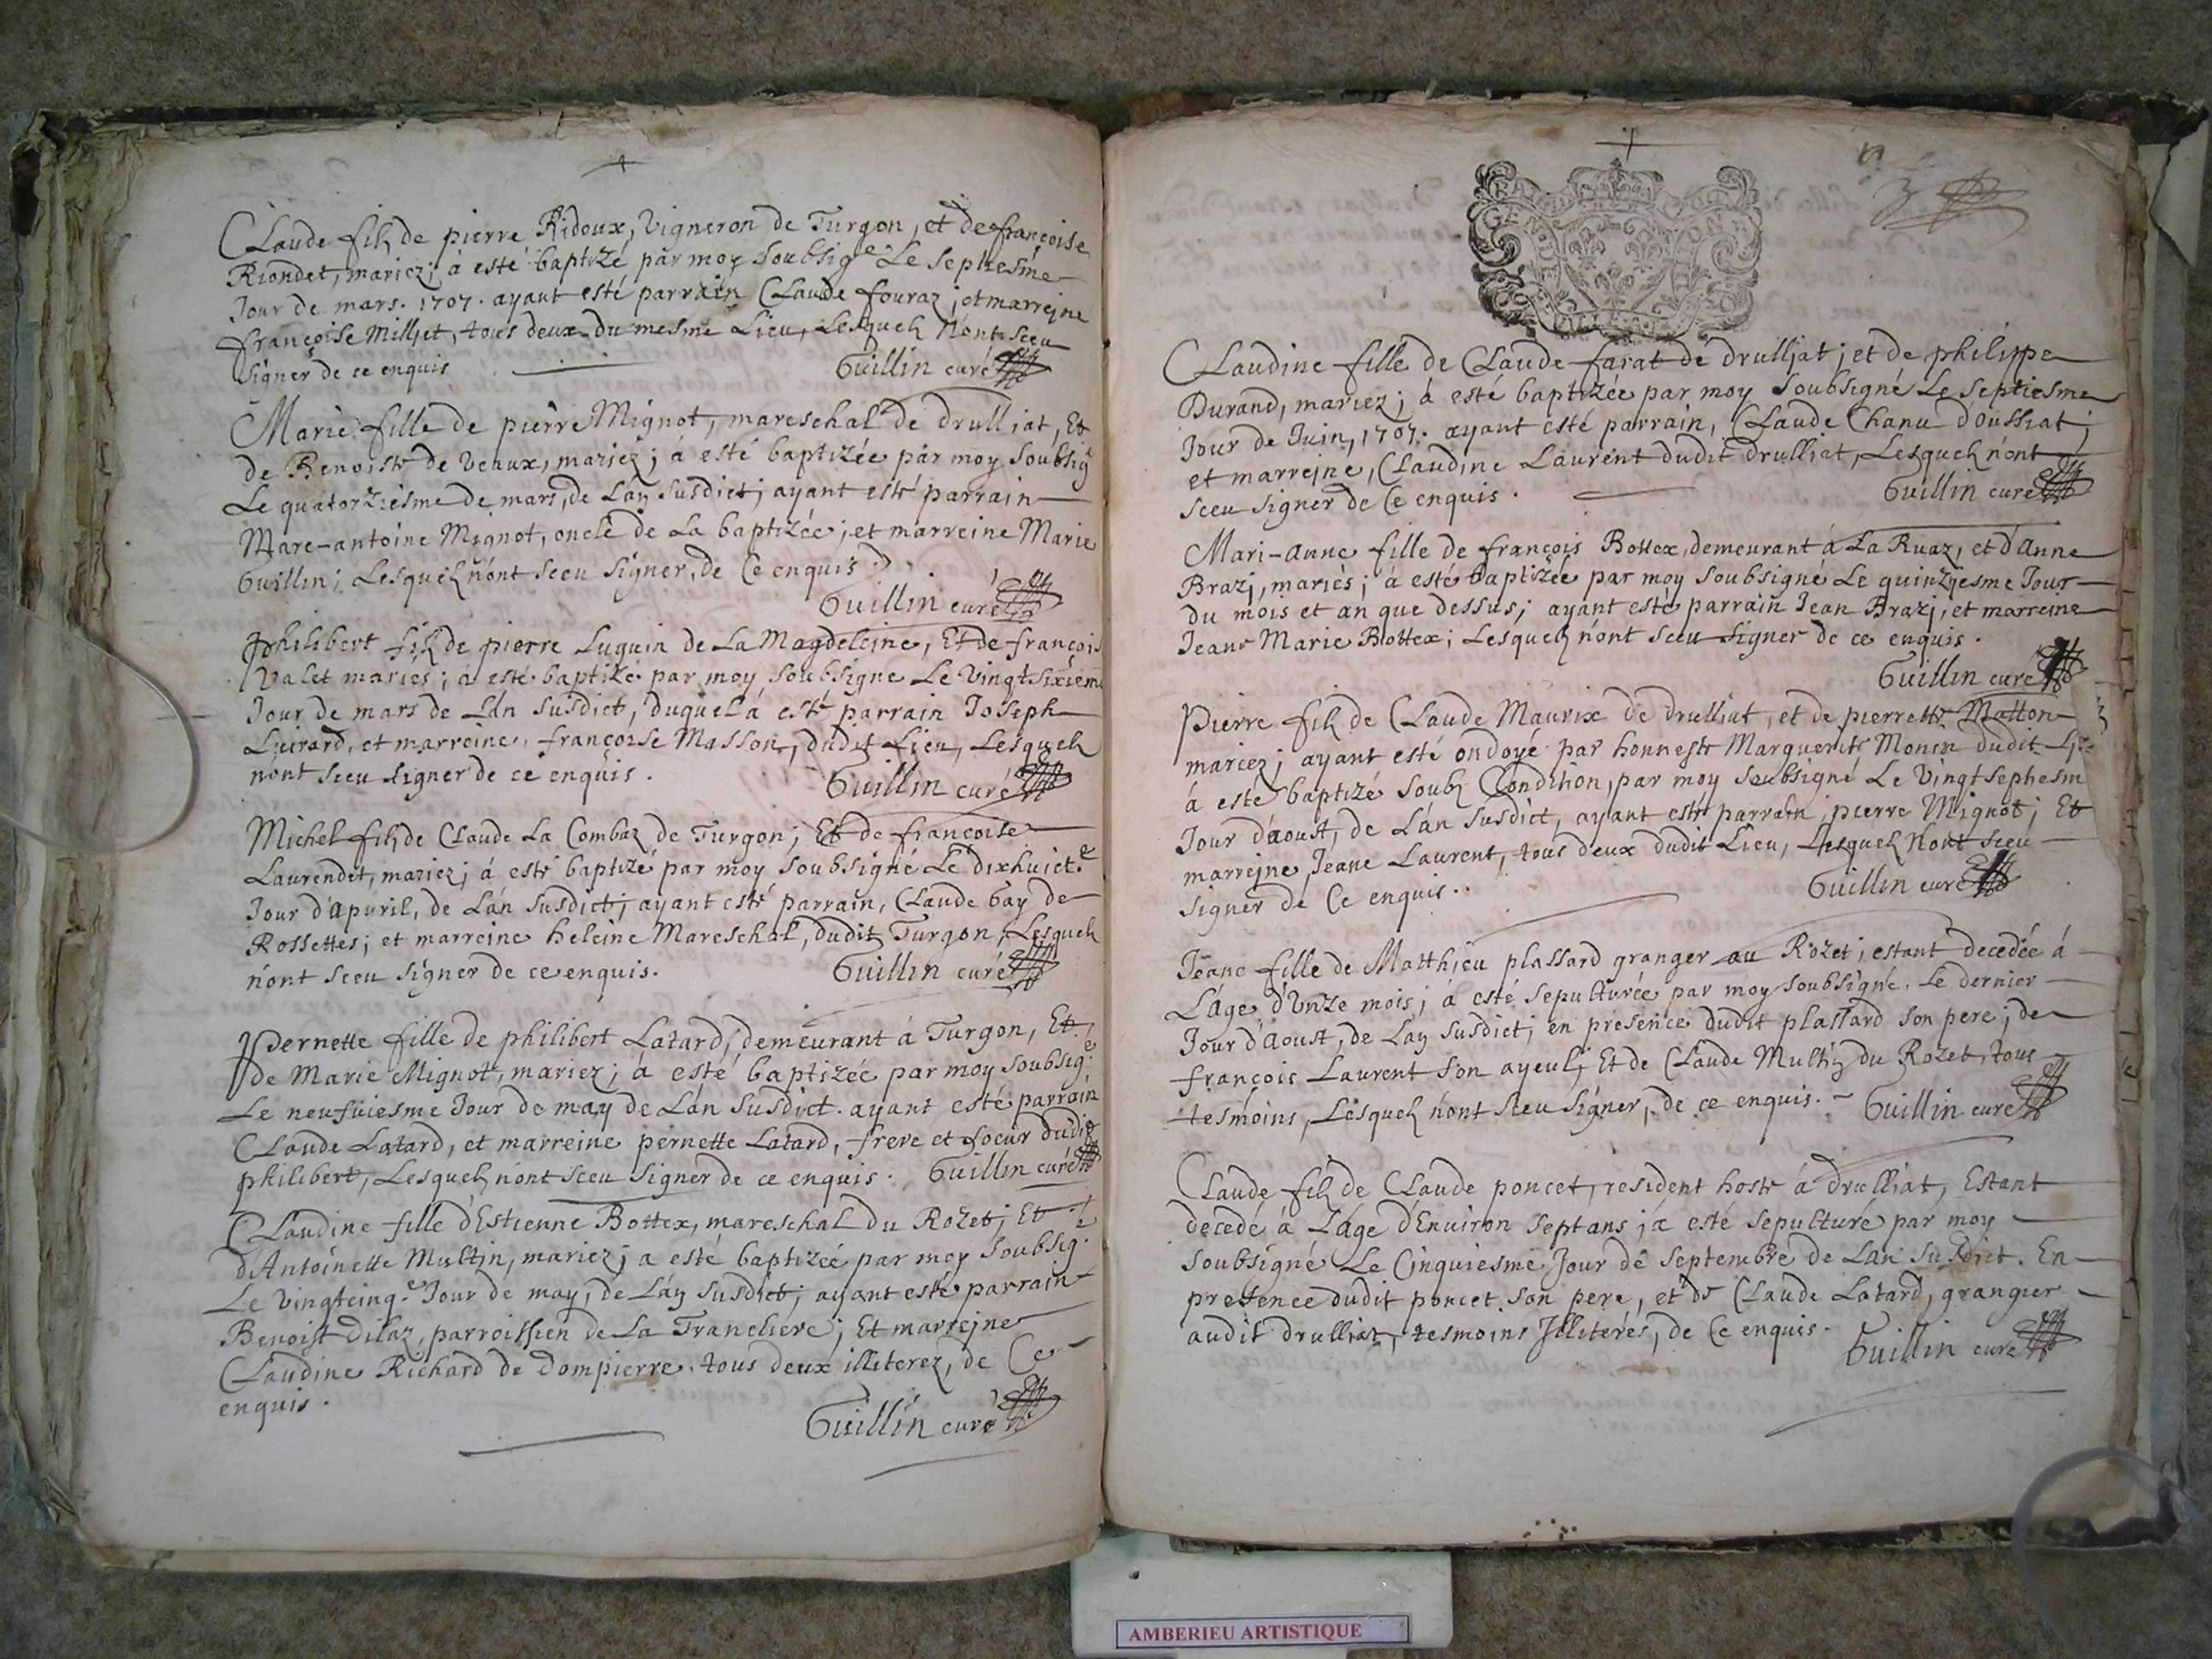 Claude filz de pierre Ridoux, Vigneron de Turgon, et de françoise
Riondet, mariez; à esté baptizé par moy Soubsig.e Le Septiesme
Jour de mars. 1707. ayant esté parrain Claude fouraz, et marrejne
françoise Milljet, tous deux du mesme Lieu, Lesquelz n'ont sceu
signer de ce enquis
Guillin curé
Marie fille de pierre Mignot, mareschal de drulliat, Et
de Benoiste de Veaux, mariez; à esté baptizée par moy Soubsig.e
Le quatorziesme de mars, de Lan Susdict; ayant esté parrain
Marc-antoine Mignot, oncle de La baptizée; et marreine Marie
Guillin; Lesquelz n'ont sceu Signer, de Ce enquis.
Guillin curé
Philibert filz de pierre Luguin de La Magdeleine, Et de françois
Valet mariés; à esté baptizé par moy Soubsigné Le Vingt sixiem
Jour de mars de Lán Susdict, duquel á esté parrain Joseph
Luirard, et marreine, françoise Masson, dudit Lieu, Lesquelz
n'ont sceu signer de ce enquis.
Guillin curé
Michel filz de Claude La Combaz de Turgon; Et de françoise
Laurendet, mariez; á esté baptizé par moy Soubsigné Le dixhuict.e
Jour d'apuril, de Lán Susdict; ayant esté parrain, Claude Gay de
Rossettes; et marreine heleine Mareschal, dudit Turgon, Lesquelz
n'ont sceu signer de ce enquis.
Guillin curé
Pernette fille de philibert Latard, demeurant á Turgon, Et
de Marie Mignot, mariez; á esté baptizée par moy Soubsig.e
Le neufuiesme Jour de may de Lán Susdict. ayant esté parrain
Claude Latard, et marreine pernette Latard, frere et soeur dudit
philibert, Lesquelz n'ont sceu signer de ce enquis. Guillin curé
Claudine fille d'Estienne Bottex, mareschal du Rozet; Et
d'Antoinette Multin, mariez; a esté baptizée par moy Soubsig.e
Le Vingtcinq.e Jour de may, de Lán Susdict; ayant esté parrain
Benoist Dilaz, parroissien de La Trancliere; Et marrejne
Claudine Richard de Dompierre. tous deux illiterez, de Ce
enquis.
Guillin curé
3
GEN
Claudine fille de Claude farat de Drulljat; et de philippe
Durand, mariez; á esté baptizée par moy Soubsigné Le Septiesme
Jour de Juin, 1707. ayant esté parrain, Claude Chanu d'Oussiat;
et marrejne, Claudine Laurent dudit Drulliat, Lesquelz n'ont
sceu signer de Ce enquis.
Guillin curé
Mari-anne fille de françois Bottex, demeurant á La Ruaz, et d'anne
Brazj, mariés; á esté baptizée par moy Soubsigné Le quinzjesme Jour
du mois et an que dessus; ayant esté parrain Jean Brazj, et marreine
Jeane Marie Bottex; Lesquelz n'ont sceu signer de ce enquis.
Guillin curé
Pierre filz de Claude Maurix de drulliat, et de pierrette Matton
mariez; ayant esté ondoyé par honneste Marguerite Monin dudit
á esté baptizé Soubz Condition, par moy soubsigné Le Vingtseptiesm
Jour d'aoust, de Lán Susdict, ayant esté parrain, pierre Mignot; Et
marrejne Jeane Laurent, tous deux dudit Lieu, Lesquelz n'ont sceu
signer de Ce enquis..
Guillin curé
Jeane fille de Matthieu plassard granger au Rozet; estant decedée á
L'áge d'Unze mois; á esté sepulturée par moy soubsigné. Le dernier
Jour d'Aoust, de Lan Susdict; en presence dudit plassard son pere; de
françois Laurent son ayeul; Et de Claude Multin du Rozet, tous
tesmoins, Lesquelz n'ont sceu signer, de ce enquis. Guillin curé
Claude filz de Claude poncet, resident hoste á Drulliat, Estant
decedé á L'áge d'Enuiron Sept ans; á esté sepulturé par moy
soubsigné Le Cinquiesme Jour de Septembre de Lan Susdict. En
presence dudit poncet son pere, et de Claude Latard, granger
audit drulliat, tesmoins Jlliterés, de Ce enquis.
Guillin curé
AMBERIEU ARTISTIQUE